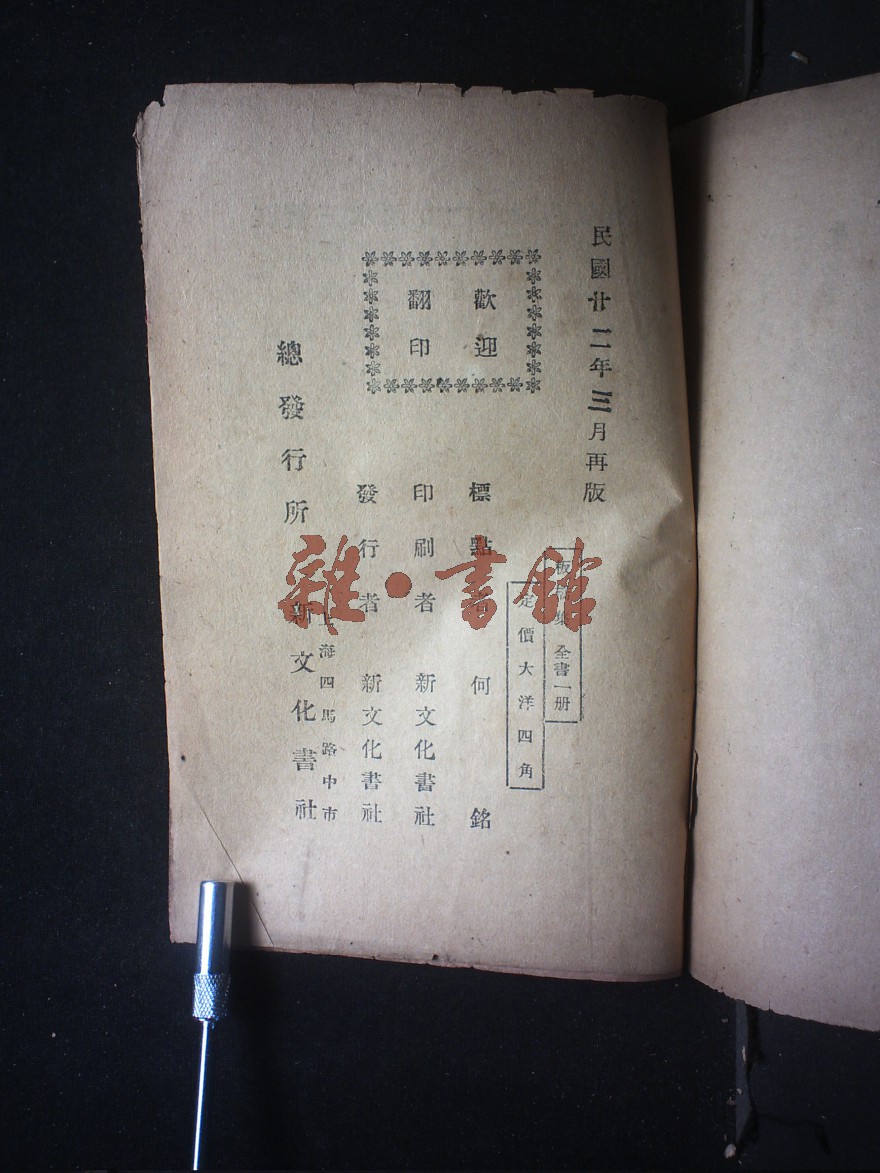 民國廿二年三月再版
歡迎
翻印
板橋集 全書一册
定價大洋四角
標點者 何銘
印刷者 新文化書社
發行者 新文化書社
上海四馬路中市
總發行所 新文化書社
雜·書館